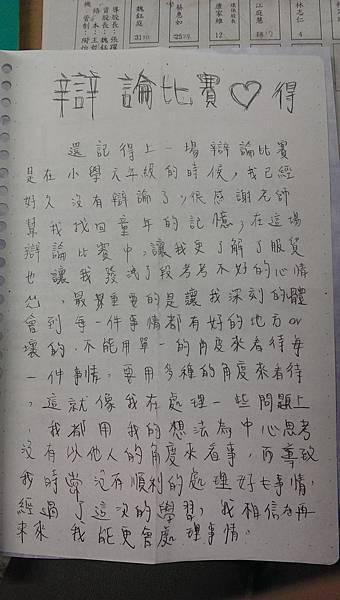 辯論比賽♡得
還記得上一場辯論比賽
是在小學六年級的時候,我已經
好久沒有辯論了,很感謝老師
幫我找回童年的記憶,在這場
辯論比賽中,讓我更了解了服貿
也讓我發洩了段考考不好的心情
,最重要的是讓我深刻的體
會到每一件事情都有好的地方or
壞的,不能用單一的角度來看待每
一件事情,要用多種的角度來看待
,這就像我在處理一些問題上
,我都用我的想法為中心思考
沒有以他人的角度來看事,而導致
我時常沒有順利的處理好事情,
經過了這次的學習,我相信為再
來來我能更會處理事情。
魏鈺庭
31
蔡惠如
25
唐家維
12
江庭慧
林志仁
4